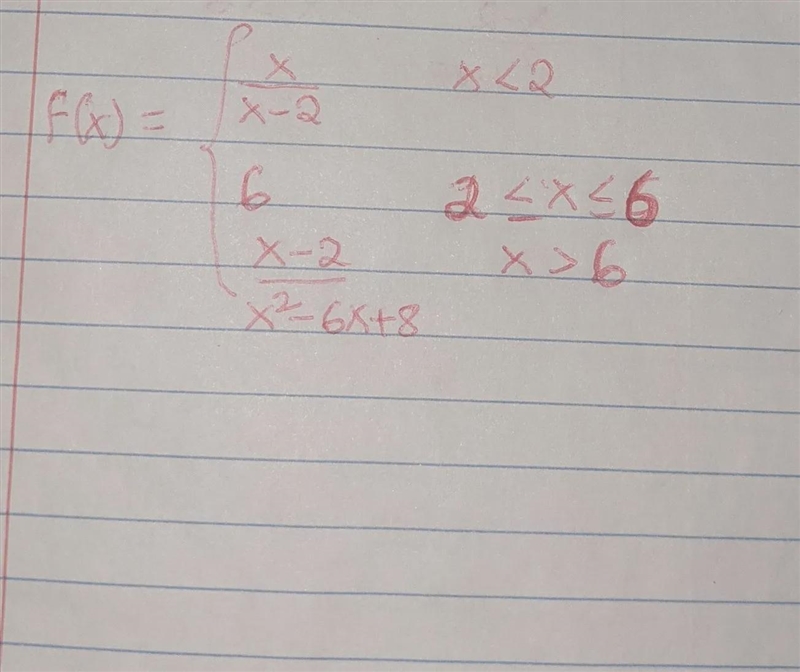 F(x) = { x/(x-2)    x < 2
6    2 ≤ x ≤ 6
(x-2)/(x²-6x+8)    x > 6